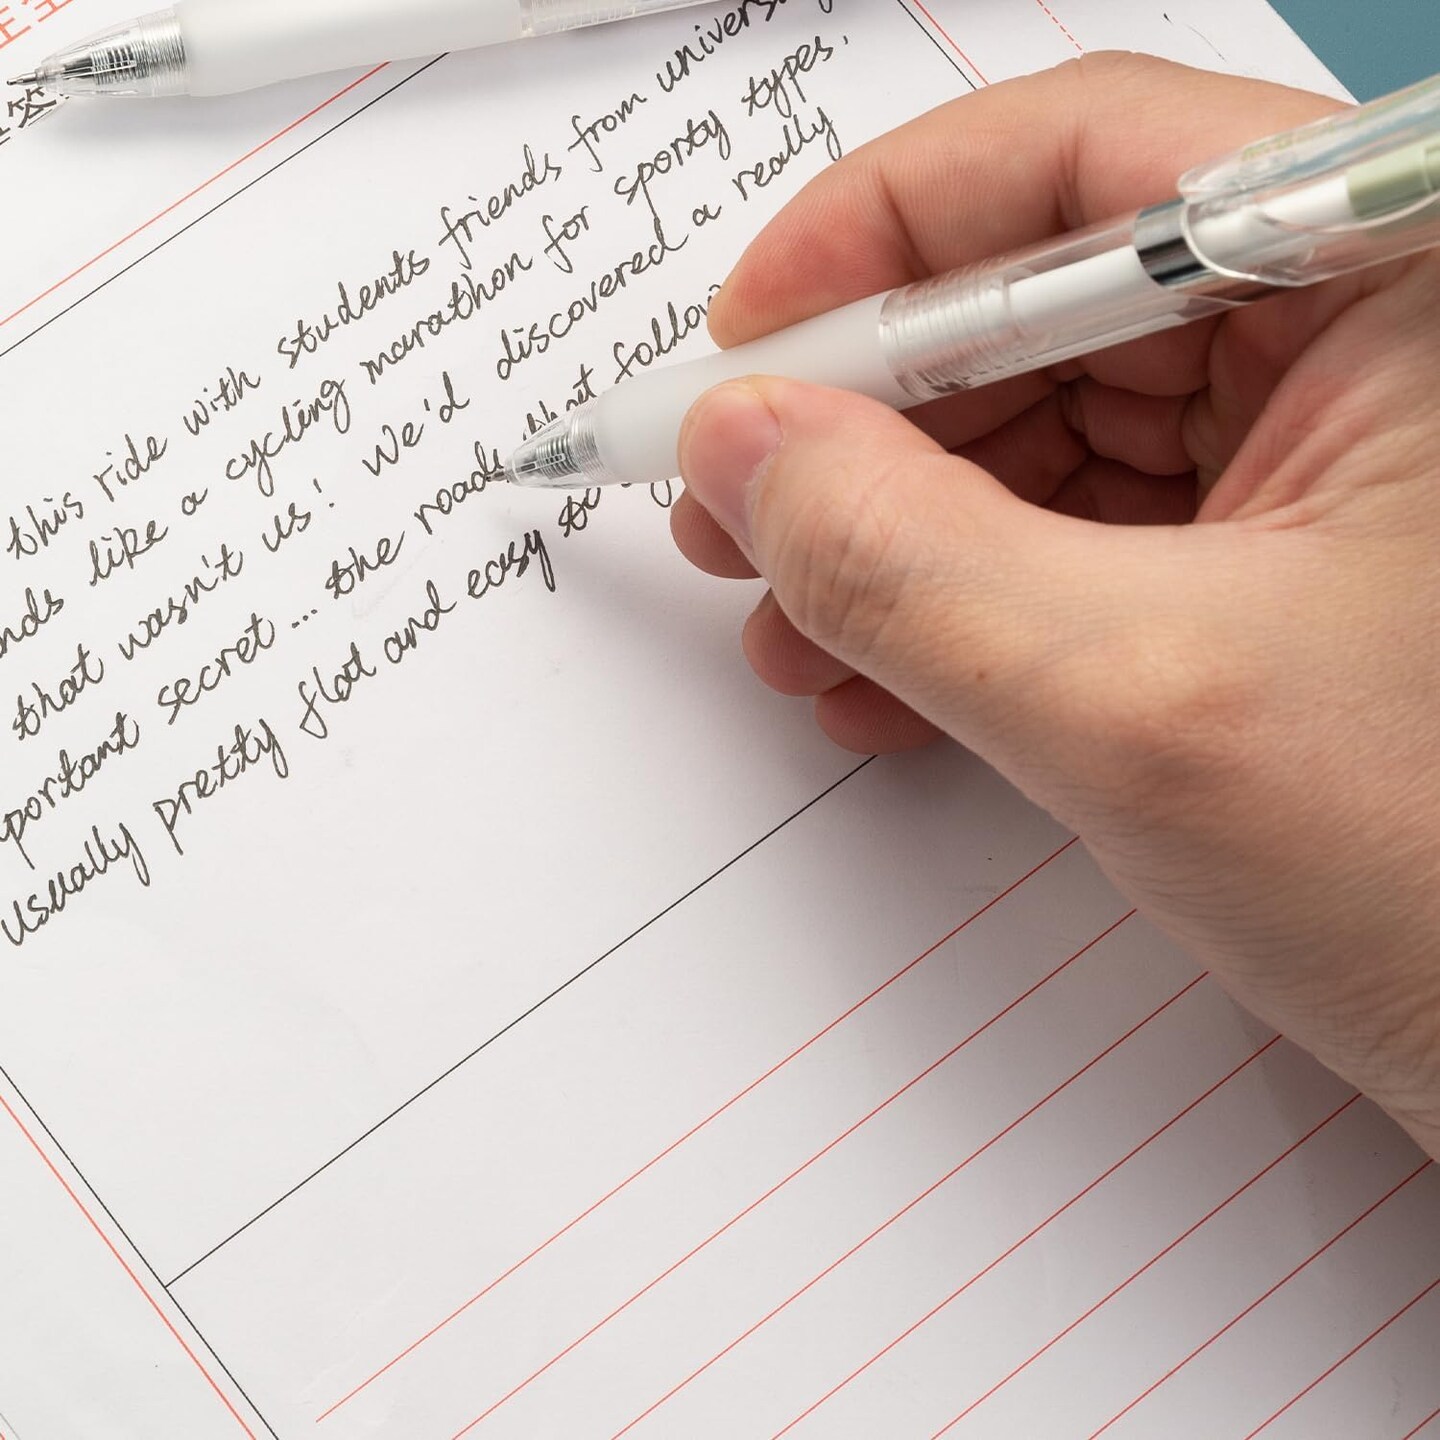 this ride with students friends from
nds like a cycling marathon for sporty types.
that wasn't us! We'd discovered a really
portant secret... the roads that follow
usually pretty flat and easy to